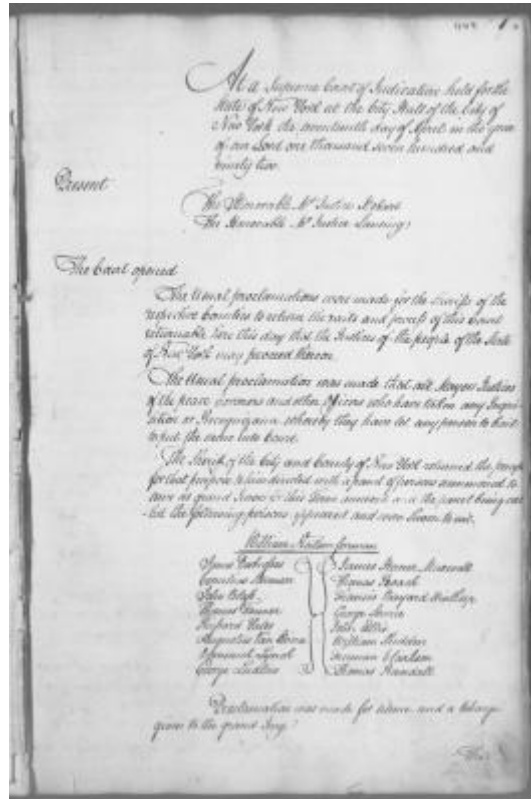 At a Supreme Court of Judicature held for the
State of New York at the City Hall of the City of
New York the seventeenth day of April in the year
of our Lord one thousand seven hundred and
ninety two.
Present
The Honorable Mr Justice Hobart
The Honorable Mr Justice Lansing
The Court opened
The Usual proclamations were made for the Sheriffs of the
respective Counties to return the writs and process of this Court
returnable here this day that the Justices of the people of the State
of New York may proceed thereon.
The Usual proclamation was made that all Mayors Justices
of the peace Coroners and other Officers who have taken any Inqui
sition or Recognizance whereby they have let any person to bail
to put the same into Court.
The Sheriff of the City and County of New York returned the precept
for that purpose to him directed with a panel of persons summoned to
serve as grand Jurors for this Term annexed and the panel being cal
led the following persons appeared and were sworn to wit.
William foreman
James
Cornelius
John
Thomas
Richard Yates
Augustus Van Horne
Lynch
George Ludlow
James Maxwell
Thomas
Francis Bayard Winthrop
George
John
William
Thomas Randall
Proclamation was made for silence and a charge
given to the grand Jury.
The